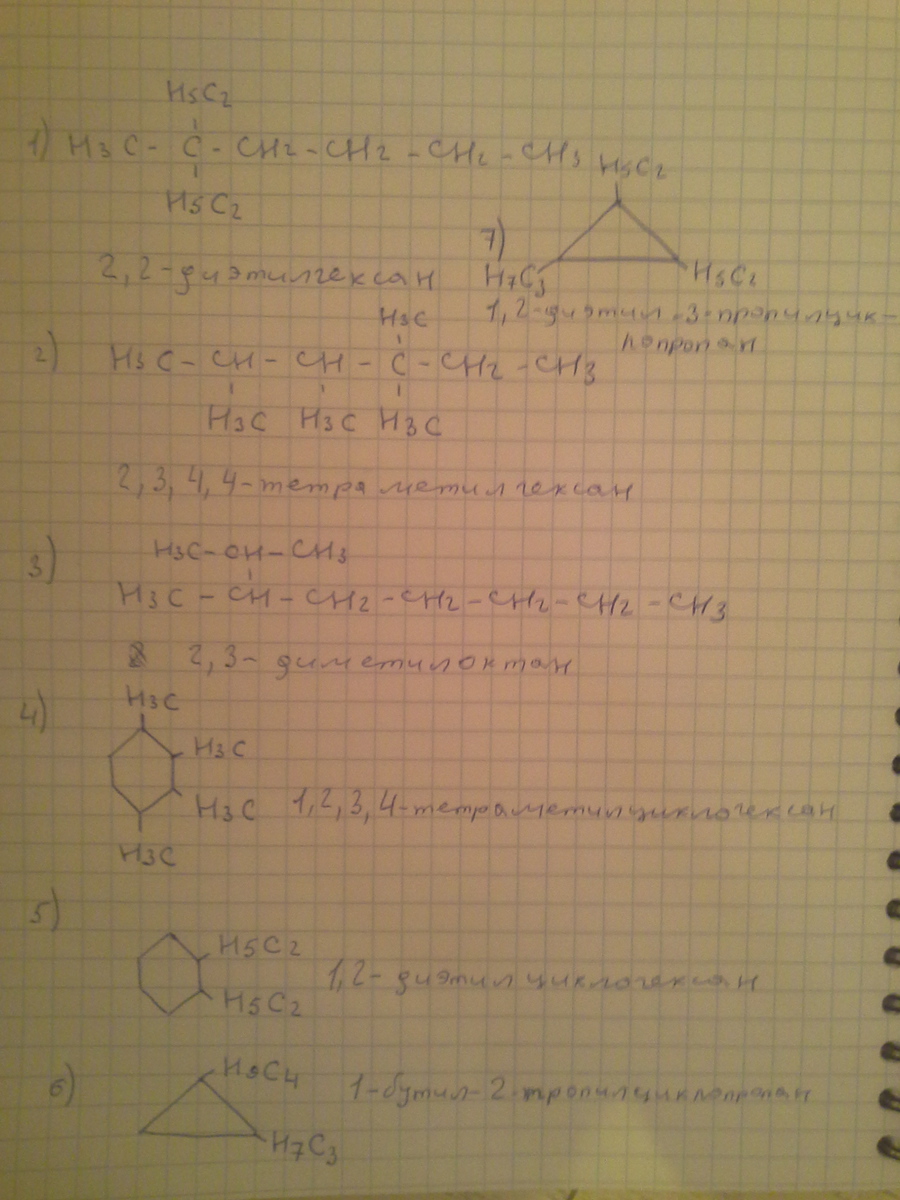 H5C2
1) H3C - C - CH2 - CH2 - CH2 - CH3
H5C2
2,2-диэтилгексан
7)
H5C2
H7C3 H5C2
1,2-диэтил-3-пропилцик-
лопропан
H3C
2) H3C - CH - CH - C - CH2 - CH3
H3C H3C H3C
2,3,4,4-тетраметилгексан
3) H3C - CH - CH3
H3C - CH - CH2 - CH2 - CH2 - CH2 - CH3
2,3-диметилоктан
4) H3C
H3C
H3C 1,2,3,4-тетраметилциклогексан
H3C
5)
H5C2
1,2-диэтилциклогексан
H5C2
6) H9C4 1-бутил-2-пропилциклопропан
H7C3